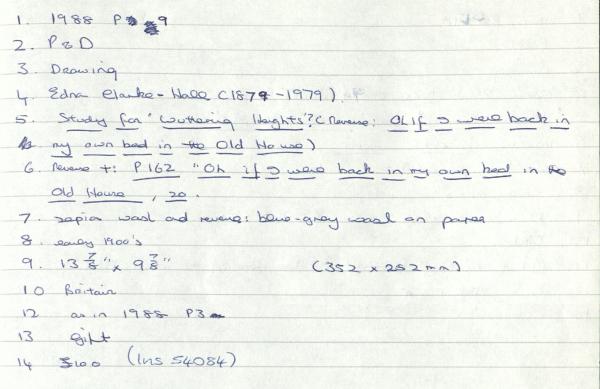 1. 1988 P 9
2. P & D
3. Drawing
4. Edna Clarke-Hall (1879-1979)
5. Study for 'Wuthering Heights? (Reverse: Oh If I were back in
my own bed in the Old House)
6. Reverse t: P162 "Oh if I were back in my own bed in the
Old House, 20.
7. sepia wash and reverse: blue-grey wash on paper
8. early 1900's
9. 13 7/8" x 9 7/8" (352 x 252mm)
10 Britain
12 as in 1988 P3
13 gift
14 £100 (Ins 54084)